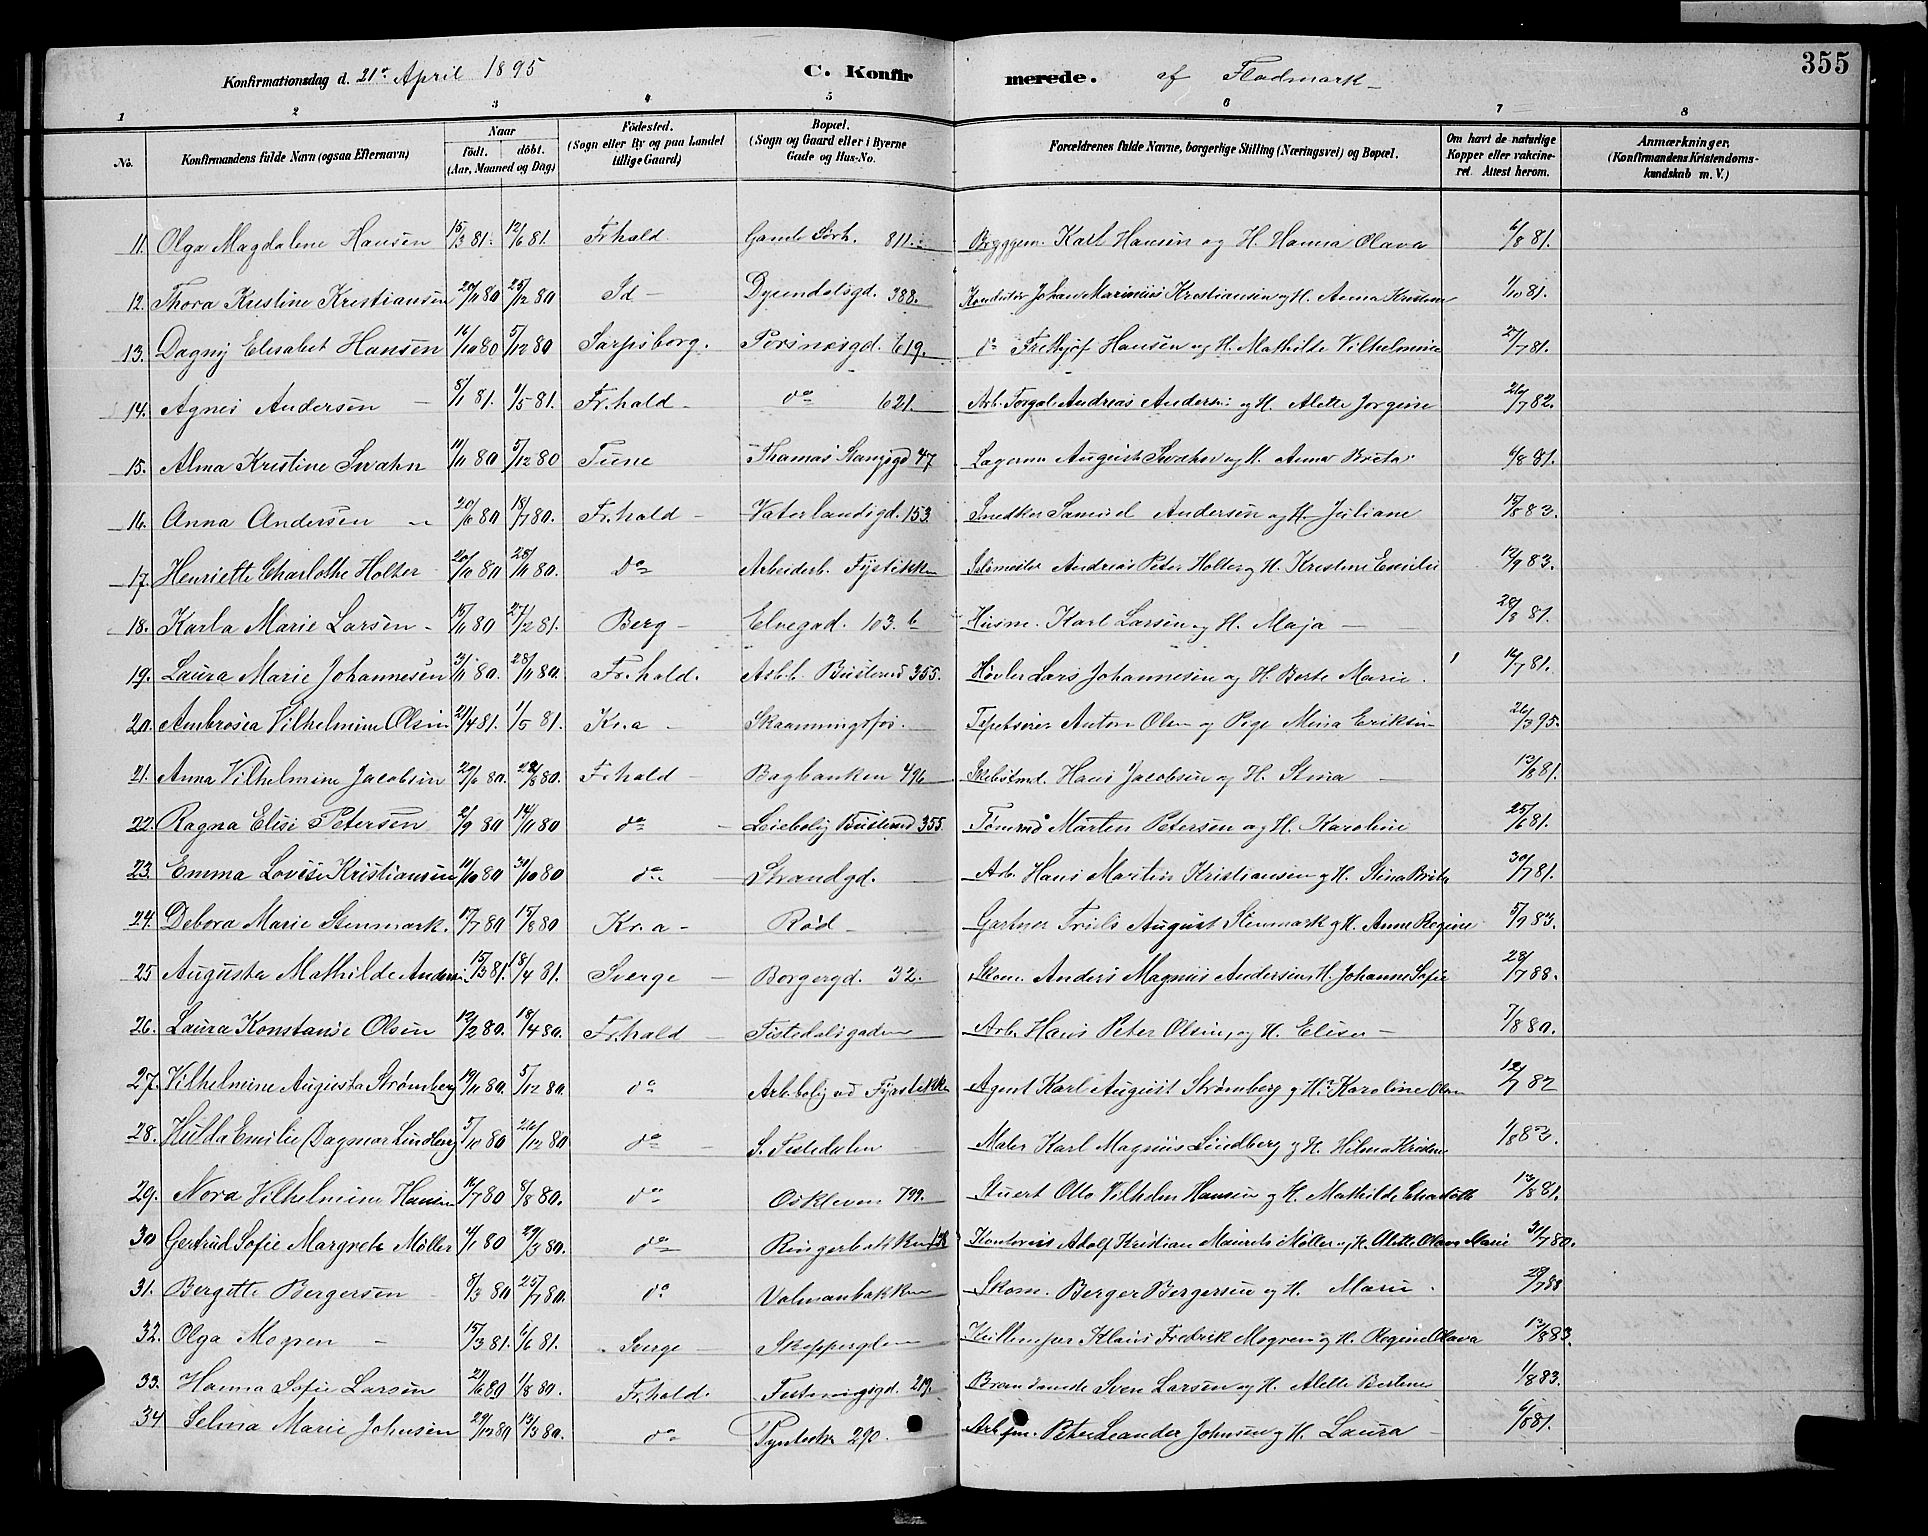 355
Konfirmationsdag d. 21de April 1895 C. Konfirmerede. af Flodmark
1 2 3 4 5 6 7 8
No. Konfirmandens fulde Navn (ogsaa Efternavn) Naar födt. döbt. (Aar, Maaned og Dag) Födested. (Sogn eller By og paa Landet tillige Gaard) Bopæl. (Sogn og Gaard eller i Byerne Gade og Hus-No. Forældrenes fulde Navne, borgerlige Stilling (Næringsvei) og Bopæl. Om havt de naturlige Kopper eller vakcineret. Attest herom. Anmærkninger. (Konfirmandens Kristendomskundskab m. V.)
11. Olga Magdalene Hansen 15/3 81. 12/6 81. Fr.hald. 811. Bryggem. Karl Hansen og H. Hanna Olava 6/8 81.
12. Thora Kristine Kristiansen 20/11 80 25/12 80 Id - Dyrendalsgd. 388. Konduktör Johan Marinius Kristiansen og H. Anna Kristine 1/10 81.
13. Dagny Elisabet Hansen 16/10 80 5/12 80 Sarpsborg. 619. do Frethjof Hansen og H. Mathilde Vilhelmine 27/7 81.
14. Agnes Andersen - 8/1 81. 1/5 81. Fr.hald - do 621. Arb. Andreas Andersen og H. Alette Jorgine 26/7 82.
15. Alma Kristine Svahn 11/11 80 5/12 80 Tune Thomas 47 August Svahn og H. Anna Brita 6/8 81.
16. Anna Andersen - 20/6 80 18/7 80. Fr.hald - Vaterlandsgd. 153. Snedker Samuel Andersen og H. Juliane 15/8 83.
17. Henriette Charlothe Holter 20/10 80 28/11 80. do Arbeiderb. Fystikken Andreas Peter Holter og H. Kristine Emilie 12/9 83.
18. Karla Marie Larsen - 15/11 80 27/2 81. Berg - Elvegad. 103. b Husm. Karl Larsen og H. Maja - 28/8 81.
19. Laura Marie Johannesen 3/11 80. 28/11 80. Fr.hald. Arb.b. Busterud 355. Høvler Lars Johannesen og H. Berte Marie. 12/7 81.
20. Ambrosia Vilhelmine Olsen 21/4 81. 1/5 81. Kr.a - Skaanningsfos. Anton Olsen og Pige Mina Eriksen 26/3 95.
21. Anna Vilhelmine Jacobsen 20/6 80. 80. Fr.hald - Bagbanken 496 Hans Jacobsen og H. Stina - 13/8 81.
22. Ragna Elise Petersen 2/9 80 14/11 80 do - Leiebolig Busterud 355. Tømmd. Martin Petersen og H. Karoline 25/6 81.
23. Emma Lovise Kristiansen 10/10 80 30/10 80 do - Strandgd. Arb. Hans Martin Kristiansen og H. Stina Brita 30/7 81.
24. Debora Marie Stenmark. 17/7 80 15/8 80 Kr.a - Rød - Gartner Truls August Stenmark og H. Anne Regine 5/9 83.
25 Augusta Mathilde Anders. 15/3 81. 18/4 81. Sverge - Borgergd. 32. Skom. Anders Magnus Andersen H. Johanne Sofie 28/7 88.
26. Laura Konstanse Olsen 12/2 80. 18/4 80. Fr.hald - Tistedalsgaden Arb. Hans Peter Olsen, og H. Elise - 7/8 80.
27. Vilhelmine Augusta Strømberg 19/11 80. 5/12 80. do Arb.bolig vd Fyrstikken Agent Karl August Strømberg og H. Karoline Olsen 12/7 82
28. Hulda Emilie Dagmar Lindberg 5/10 80 26/12 80 do - S. Tistedalen Maler Karl Magnus Lindberg og H. Hilma Kristine 1/8 82.
29. Nora Vilhelmine Hansen 16/7 80 8/8 80. do Oskleven 799. Stuert Otto Vilhelm Hansen og H. Mathilde Charlotte 13/8 81.
30 Gertrud Sofie Margrete Møller 4/1 80 29/3 80. do Ringerbakken Kontorist Adolf Kristian Maurits Møller og H. Alette Olava Marie 31/7 80.
31. Bergitte Bergersen 8/3 80 25/7 80. do Valmanbakken Skom. Berger Bergersen og H. Marie. 28/7 88
32. Olga Mogren - 15/3 81. 6/6 81. Sverge - Klaus Fredrik Mogren og H. Regine Olava 12/8 83.
33. Hanna Sofie Larsen 21/6 80 1/8 80. Fr.hald. Festningsgd. 219. Sven Larsen og H. Alette Bertine 1/8 83.
34 Selma Marie Johnsen 29/12 80 13/3 80. do 290. Arb.fm. Peter Leander Johnsen og H. Laura - 6/8 81.